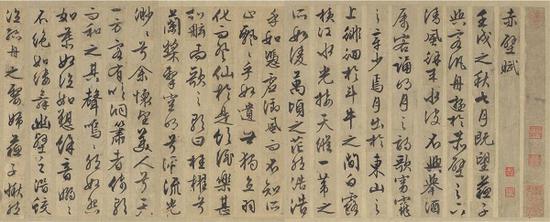 赤壁賦
壬戌之秋七月既望蘇子
與客汎舟遊於赤壁之下
清風徐來水波不興舉酒
屬客誦明月之詩歌窈窕
之章少焉月出於東山之
上徘徊於斗牛之間白露
橫江水光接天縱一葦之
所如凌萬頃之茫然浩浩
乎如憑虛御風而不知所
止飄飄乎如遺世獨立羽
化而登仙於是飲酒樂甚
扣舷而歌之歌曰桂櫂兮
蘭槳擊空明兮泝流光
渺渺兮余懷望美人兮天
一方客有吹洞簫者倚歌
而和之其聲嗚嗚然如怨
如慕如泣如愬餘音嫋嫋
不絕如縷舞幽壑之潛蛟
泣孤舟之嫠婦蘇子愀然